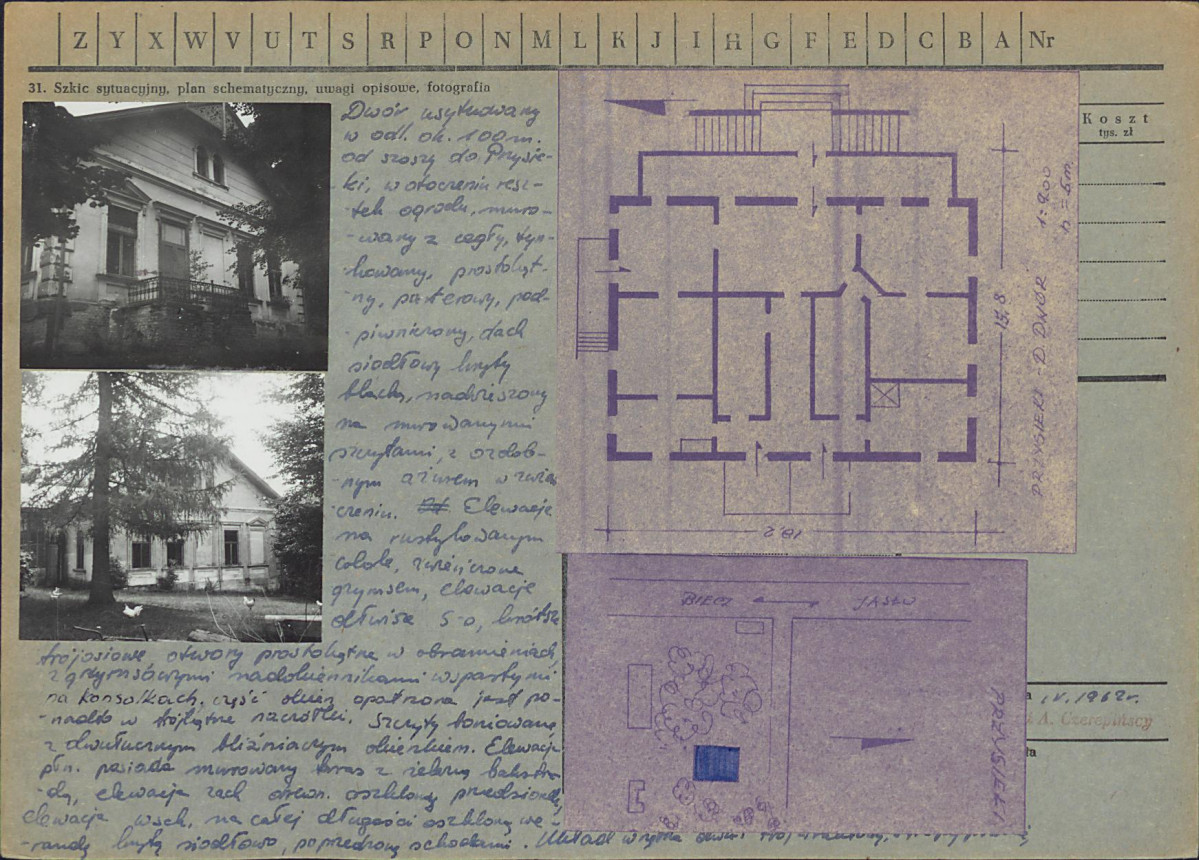 Z Y X W V U T S R P O N M L K J I H G F E D C B A Nr
31. Szkic sytuacyjny, plan schematyczny, uwagi opisowe, fotografia
Koszt
tys. zł
Dwór usytuowany
w odl. ok. 100 m.
od szosy do Przysie-
-ki, w otoczeniu resz-
-tek ogrodu, muro-
-wany z cegły, tyn-
-kowany, prostokąt-
-ny, parterowy, pod-
-piwniczony, dach
siodłowy kryty
blachą, nadwieszony
na murowanymi
szczytami, z ozdob-
-nym ażurem w zwień-
-czeniu. Elewacje
na rustykowanym
cokole, zwieńczone
gzymsem, elewacje
dłuższe 5-o, krótsze
trójosiowe, otwory prostokątne w obramieniach,
z gzymsowymi nadokiennikami wspartymi
na konsolkach, część okien opatrzona jest po-
-nadto w trójkątne naczółki. Szczyty boniowane
z dwułucznym bliźniaczym okienkiem. Elewacja
płn. posiada murowany taras z żelazną balustra-
-dą, elewacja zach drewn. oszklony przedsionek,
elewacja wsch. na całej długości oszkloną we-
-randę krytą siodłowo, poprzedzoną schodami. Układ wnętrza
PRZYSIEKI - D. DWÓR 1:200
h = 5m.
15,8
18,2
BIECZ JASŁO
PRZYSIEKI
IV. 1962r.
A. Czerepińscy